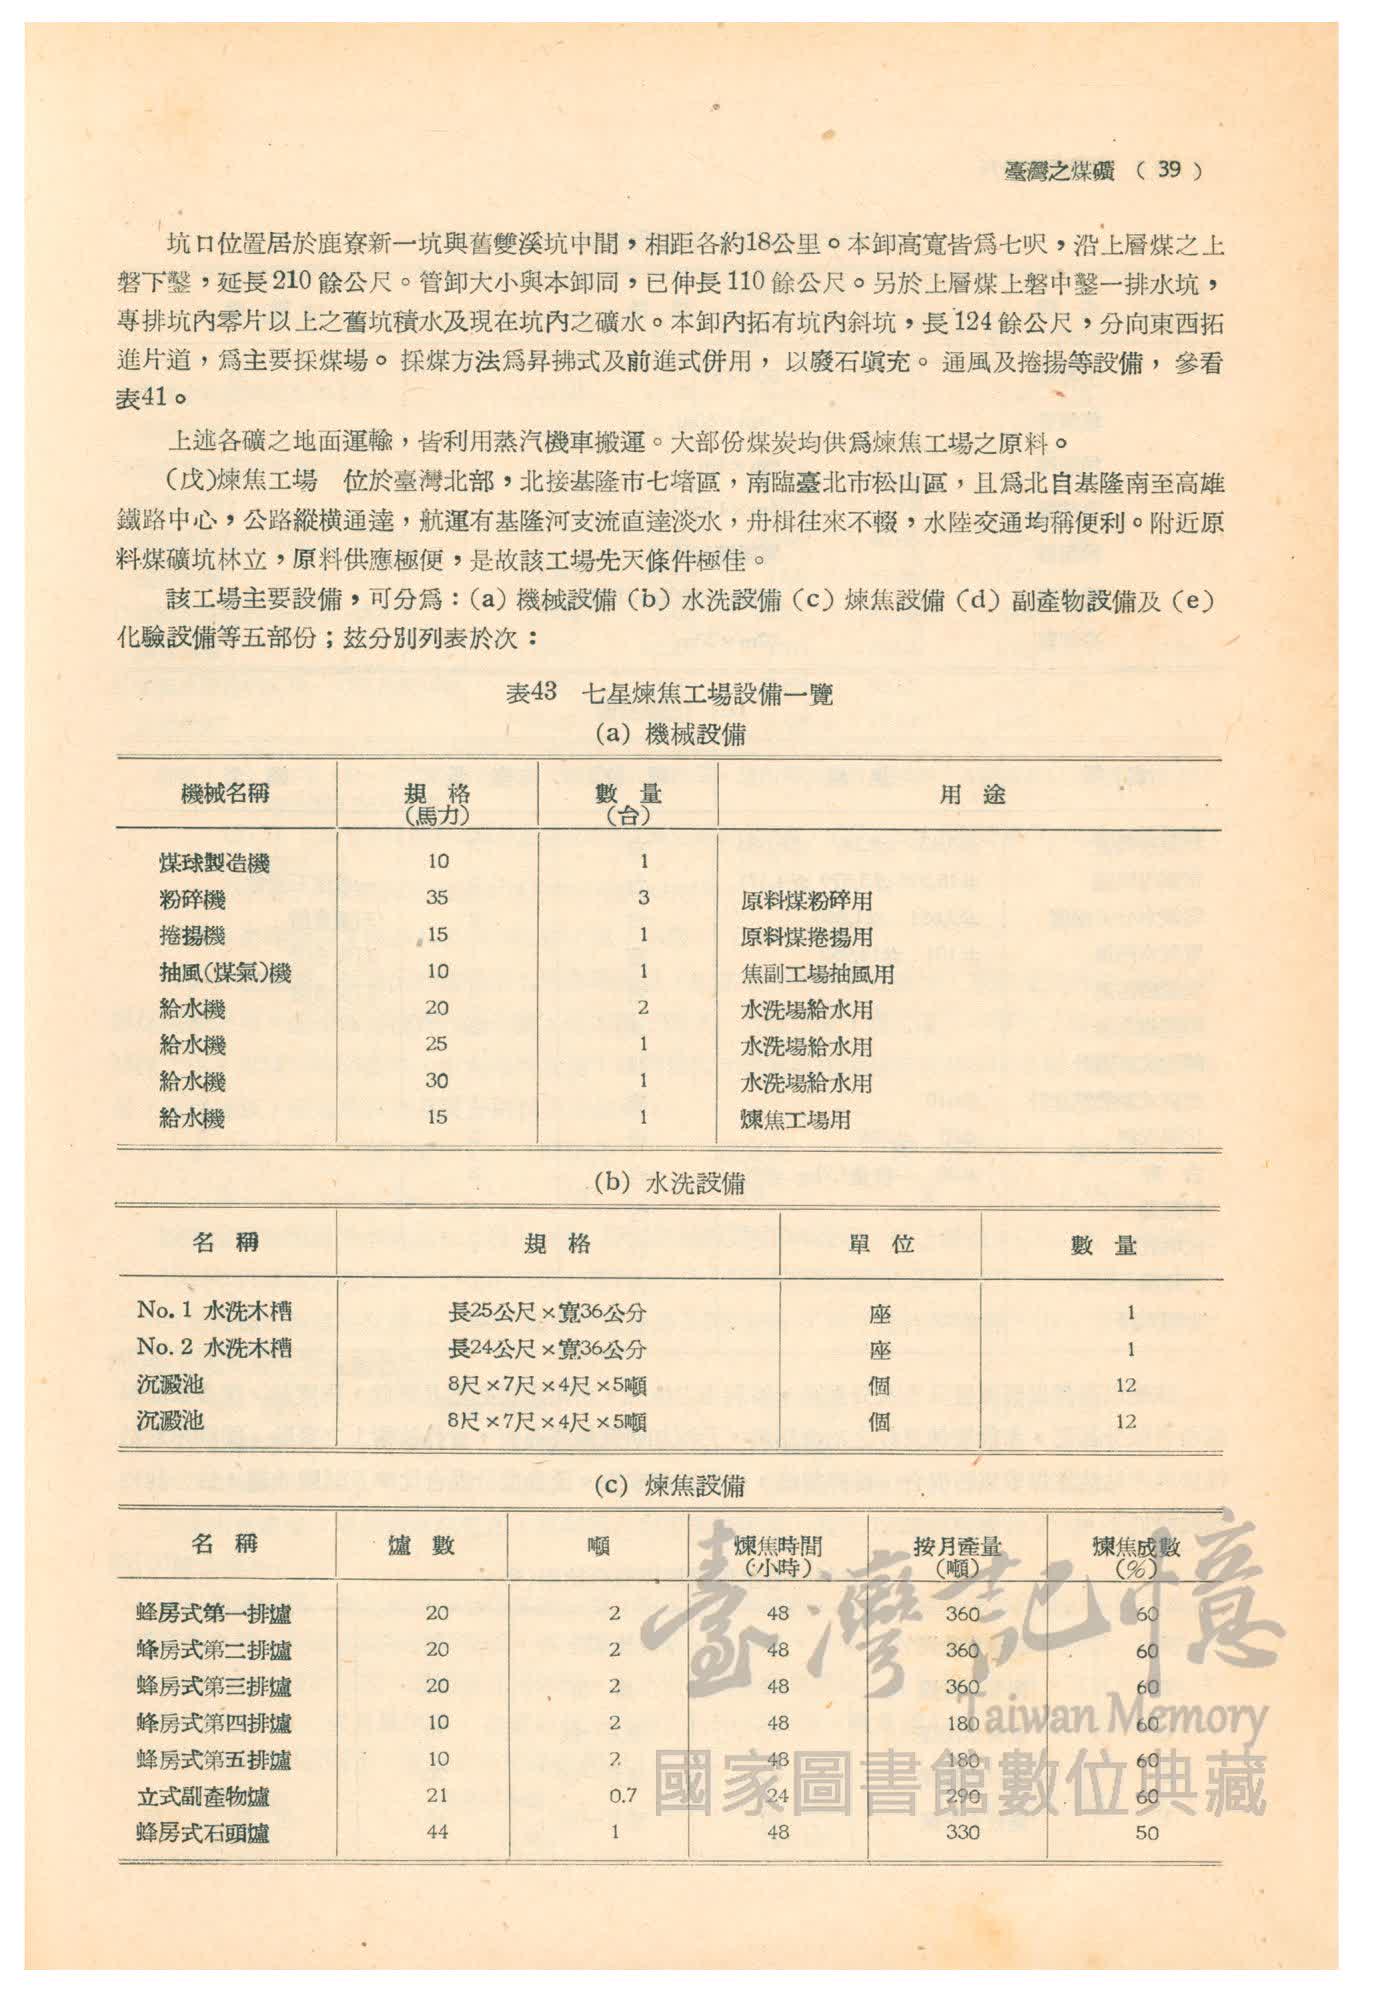 臺灣之煤礦 ( 39 )
坑口位置居於鹿寮新一坑與舊雙溪坑中間，相距各約18公里。本卸高寬皆爲七呎，沿上層煤之上
磐下鑿，延長210餘公尺。管卸大小與本卸同，已伸長110餘公尺。另於上層煤上磐中鑿一排水坑，
專排坑內零片以上之舊坑積水及現在坑內之礦水。本卸內拓有坑內斜坑，長124餘公尺，分向東西拓
進片道，爲主要採煤場。採煤方法爲昇拂式及前進式併用，以廢石塡充。通風及捲揚等設備，參看
表41。
上述各礦之地面運輸，皆利用蒸汽機車搬運。大部份煤炭均供爲煉焦工場之原料。
(戊)煉焦工場　位於臺灣北部，北接基隆市七堵區，南臨臺北市松山區，且爲北自基隆南至高雄
鐵路中心，公路縱橫通達，航運有基隆河支流直達淡水，舟楫往來不輟，水陸交通均稱便利。附近原
料煤礦坑林立，原料供應極便，是故該工場先天條件極佳。
該工場主要設備，可分爲：(a) 機械設備 (b) 水洗設備 (c) 煉焦設備 (d) 副產物設備及 (e)
化驗設備等五部份；玆分別列表於次：
表43　七星煉焦工場設備一覽
(a) 機械設備
機械名稱　規格(馬力)　數量(台)　用途
煤球製造機　10　1
粉碎機　35　3　原料煤粉碎用
捲揚機　15　1　原料煤捲揚用
抽風(煤氣)機　10　1　焦副工場抽風用
給水機　20　2　水洗場給水用
給水機　25　1　水洗場給水用
給水機　30　1　水洗場給水用
給水機　15　1　煉焦工場用
(b) 水洗設備
名稱　規格　單位　數量
No. 1 水洗木槽　長25公尺×寬36公分　座　1
No. 2 水洗木槽　長24公尺×寬36公分　座　1
沉澱池　8尺×7尺×4尺×5噸　個　12
沉澱池　8尺×7尺×4尺×5噸　個　12
(c) 煉焦設備
名稱　爐數　噸　煉焦時間(小時)　按月產量(噸)　煉焦成數(%)
蜂房式第一排爐　20　2　48　360　60
蜂房式第二排爐　20　2　48　360　60
蜂房式第三排爐　20　2　48　360　60
蜂房式第四排爐　10　2　48　180　60
蜂房式第五排爐　10　2　48　180　60
立式副產物爐　21　0.7　24　290　60
蜂房式石頭爐　44　1　48　330　50
臺灣記憶
Taiwan Memory
國家圖書館數位典藏